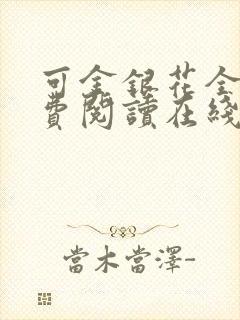 可金銀花全
費閱讀在綫
當木當澤-